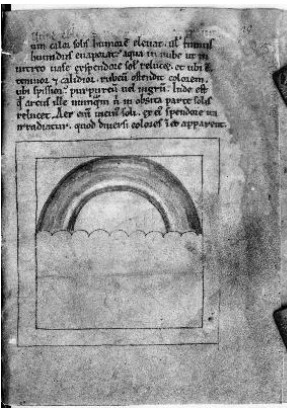 um calor solis humorē eleuat. ul' fumus
humidus euaporat. aqua in nube ut in
uitreo uase ex spendore sol' relucet. et ubi ē
tenuior & calidior. rubeū ostendit colorem.
ubi spissior. purpureū uel nigrū. Inde est
q̄ arcus ille nunquā n̄ in opsita parte solis
relucet. Aer eni uicin' soli. ex ei' spendore
irradiatur. quod diuersi colores apparent.